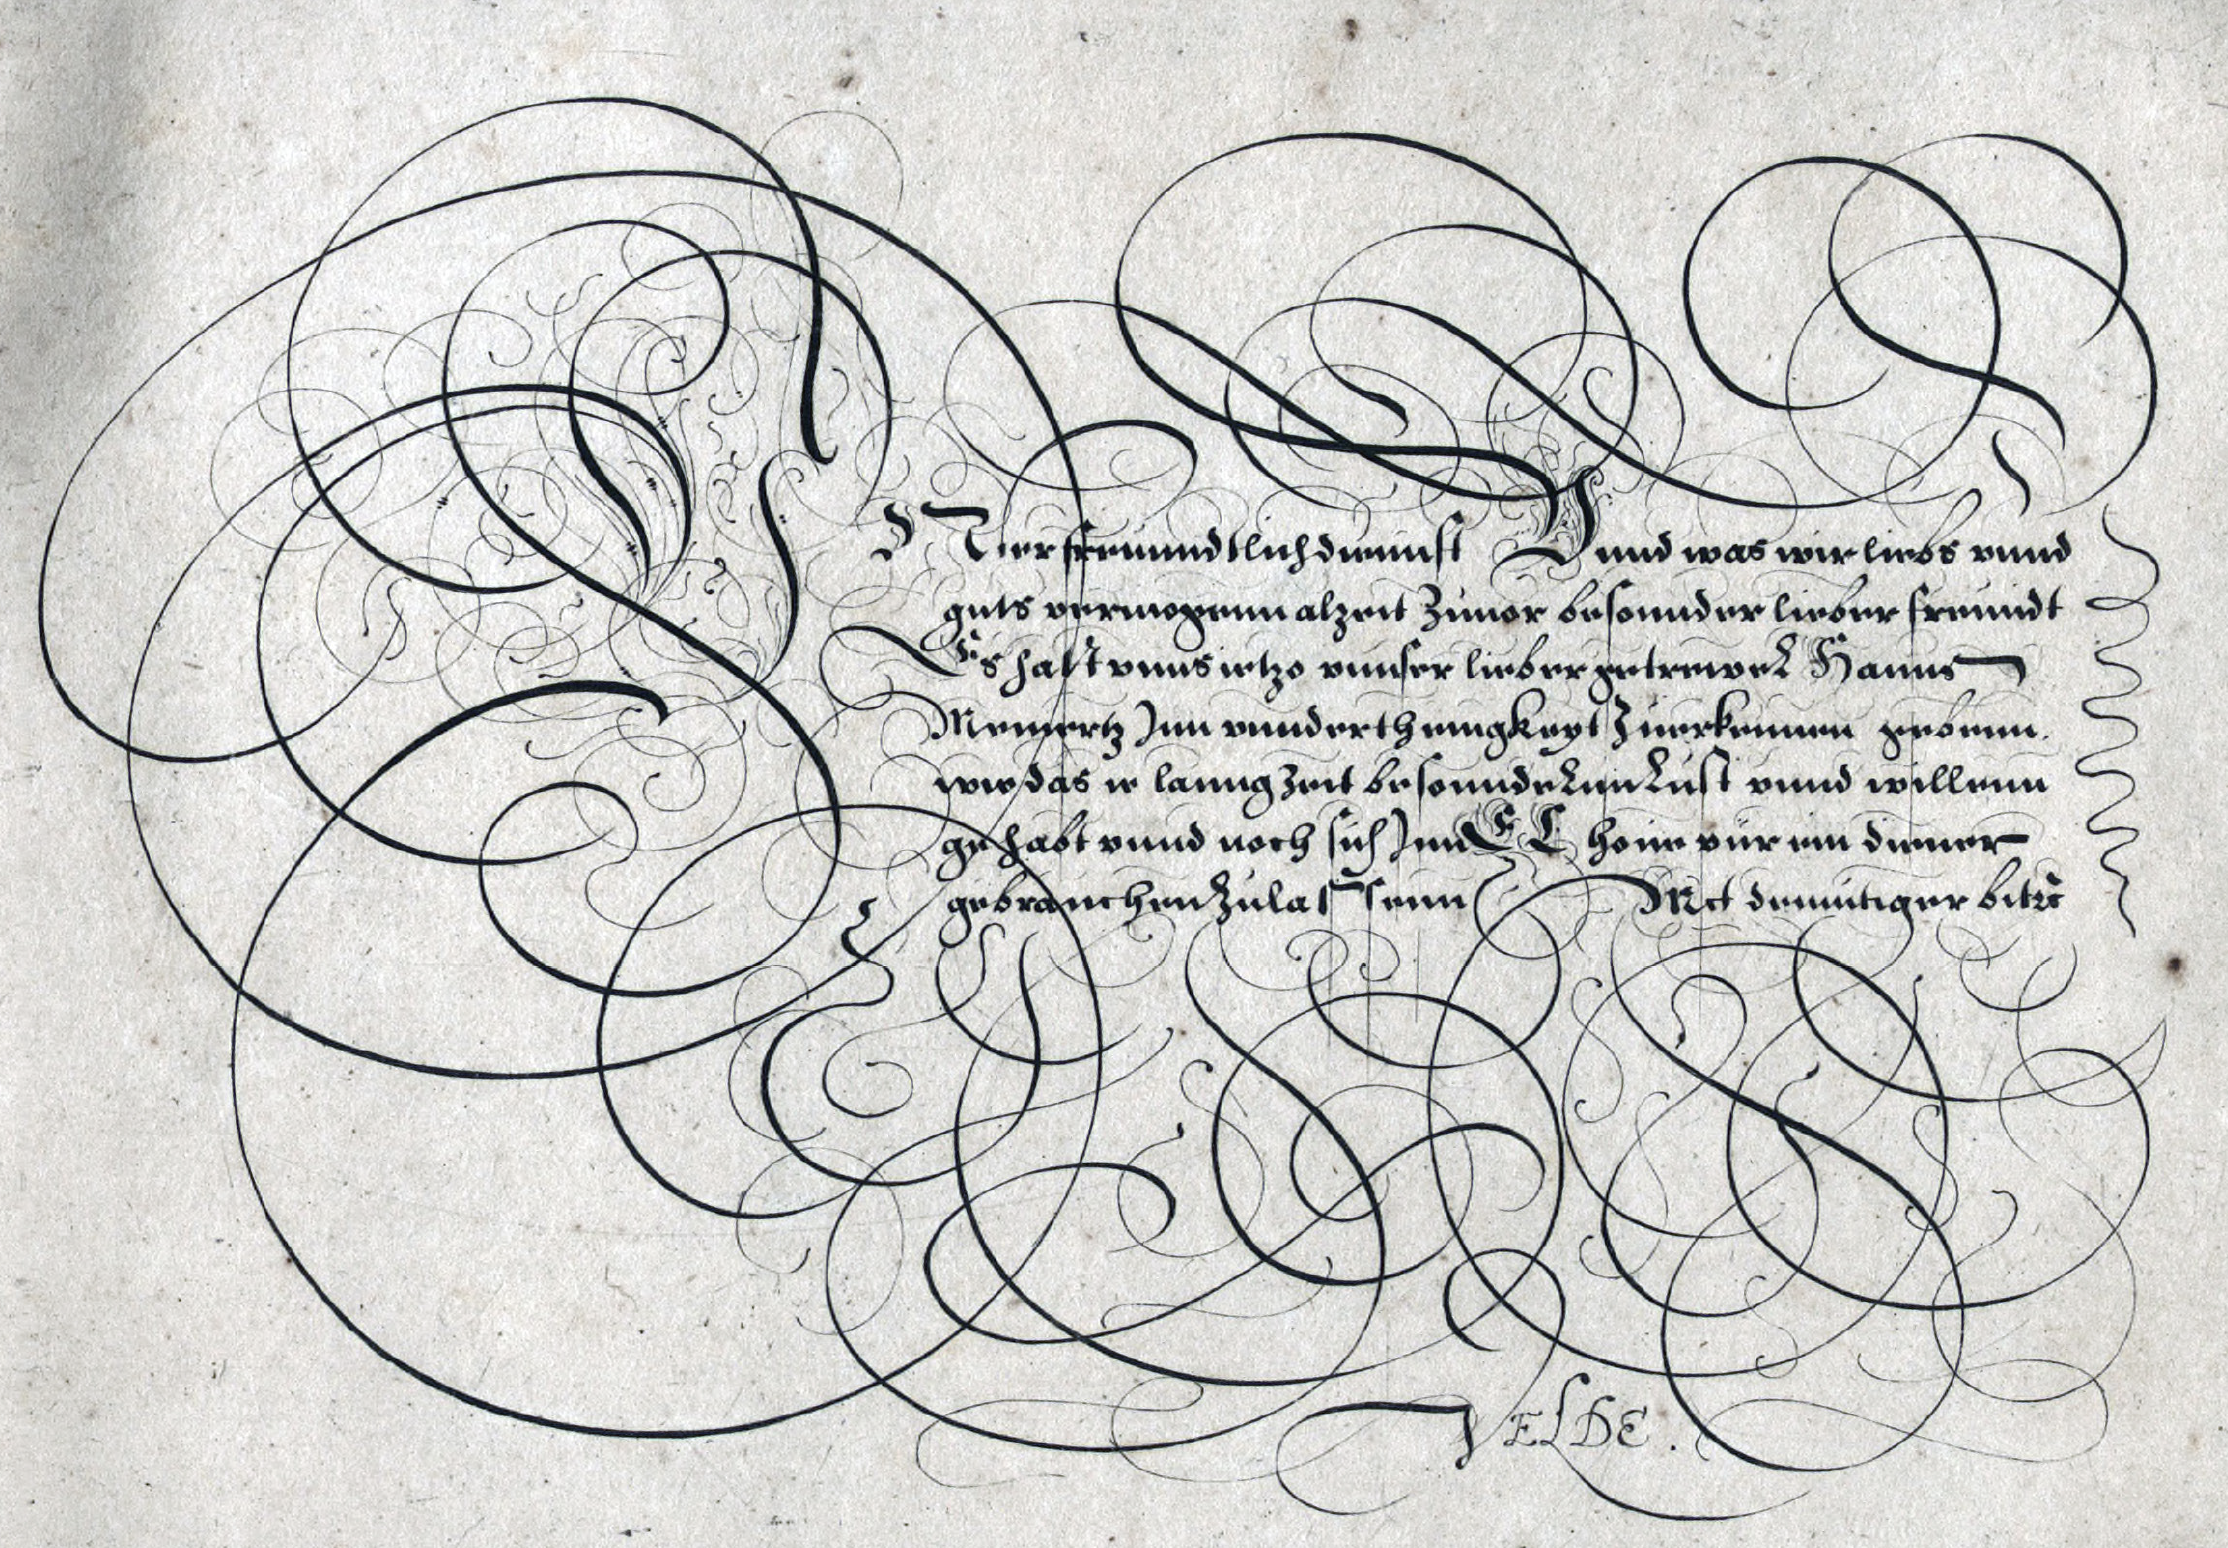 Vnser freunndtlich diennst Vnnd was wir liebs vnnd
guts vermogenn alzeit Zuuor besonnder lieber freundt
Es hatt vnns ietzo vnnser lieber getrewer Hanns
Meinertz Inn vnnderthenigkeyt Zuerkennen gebenn.
wie das er lanng Zeit besonnderlin Lust vnnd willenn
gehabt vnnd noch sich Inn E L vür ein diener
gebrauchen Zulassenn Mit demutiger bitt
VELDE.